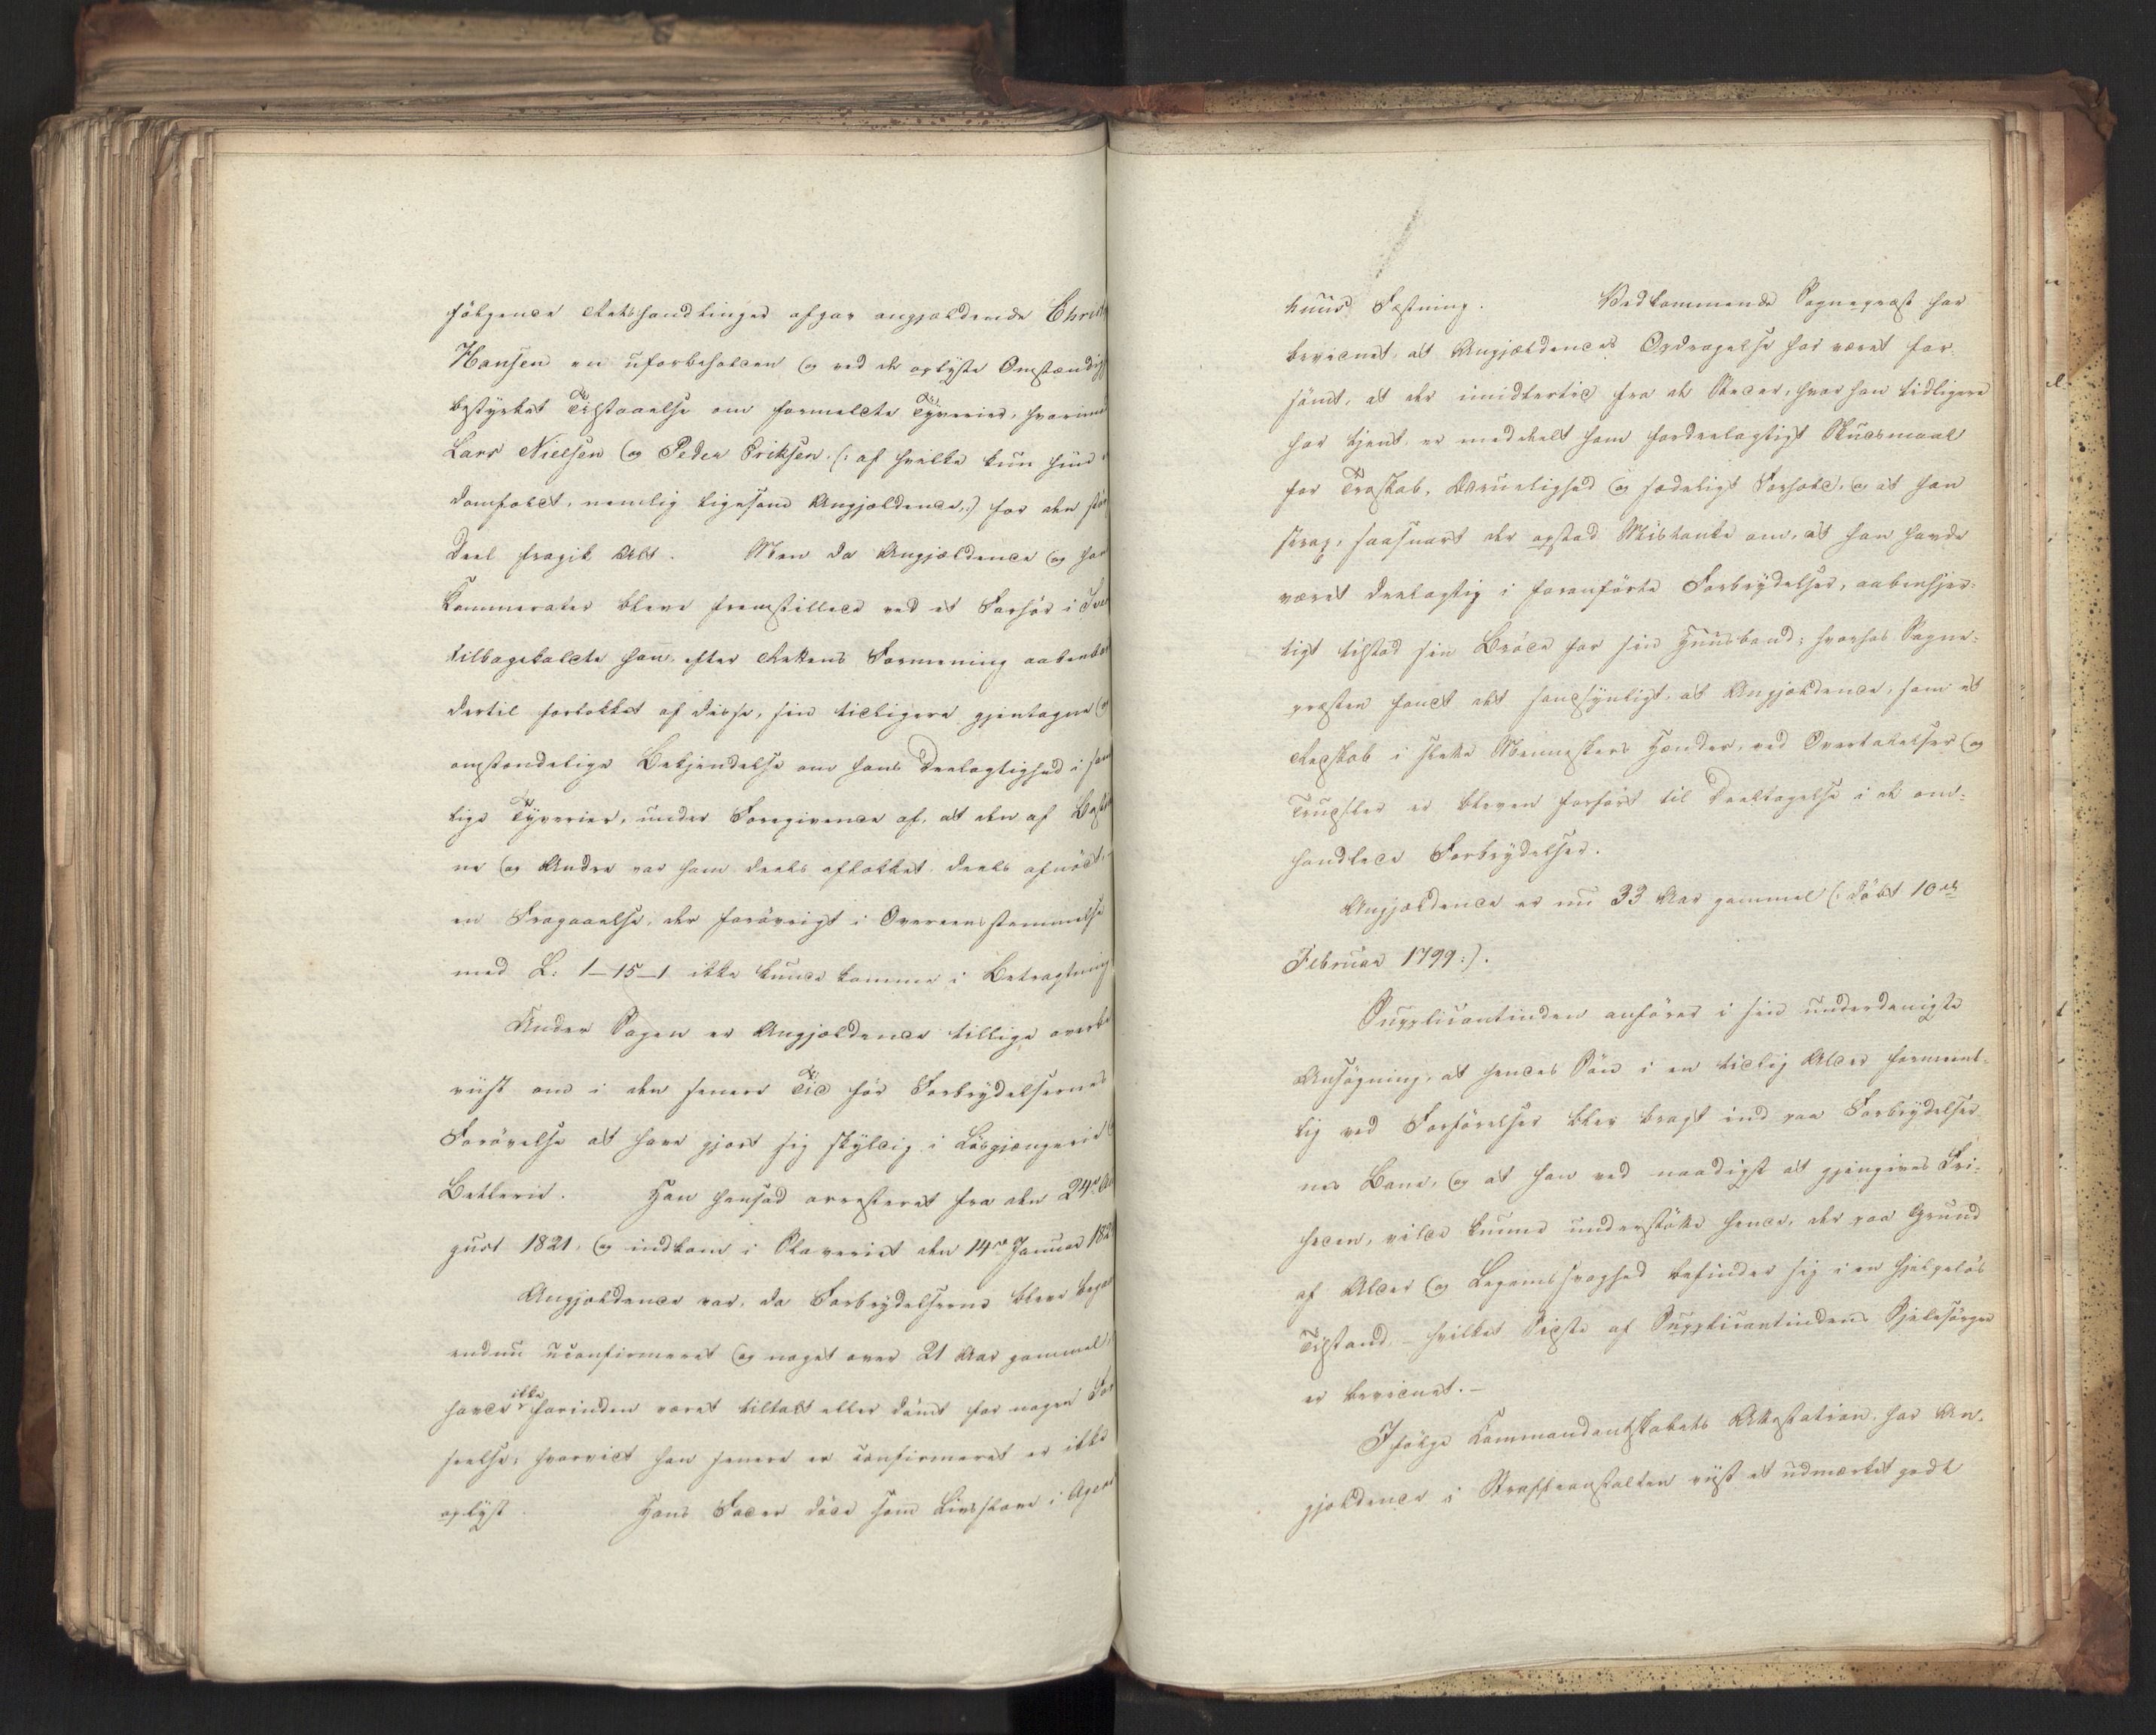 følgende Retshandlinger afgav angjældende Christ
Hansen en uforbeholden og ved de oplyste Omstændigh
bestyrket Tilstaaelse om formeldte Tyverier, hvorimod
Lars Nielsen og Peder Eriksen (: af hvilke kun hiin
domfældt, nemlig ligesom Angjældende,:) for den stør
Deel fragik Alt. Men da Angjældende og han
Kammerater bleve fremstillede ved et Forhør i
tilbagekaldte han, efter Rettens Formening aabenbar
dertil forlokket af disse, sin tidligere gjentagne og
omstændelige Bekjendelse om hans Deelagtighed i sam
lige Tyverier, under Foregivende af, at den af Besti
ne og Andre var ham deels aflokket deels afnødt,
en Fragaaelse, der forøvrigt i Overeensstemmelse
med L: 1-15-1 ikke kunde komme i Betragtning
Under Sagen er Angjældende tillige overbe
viist om i den senere Tid før Forbrydelsernes
Forøvelse at have gjort sig skyldig i Løsgjængerie
Betlerie. Han hensad arresteret fra den 24de Au
gust 1821, og indkom i Slaveriet den 14de Januar 182
Angjældende var, da Forbrydelserne bleve begaa
endnu uconfirmeret og noget over 21 Aar gammel,
havde ikke forinden været tiltalt eller dømt for nogen For
seelse; hvorvidt han senere er confirmeret er ikke
oplyst. Hans Fader døde som Livsslave i Agers
huus Fæstning. Vedkommende Sognepræst har
bevidnet, at Angjældendes Opdragelse har været for
sømt, at der imidlertid fra de Steder, hvor han tidligere
har tjent, er meddeelt ham fordeelagtigt Skudsmaal
for Troskab, Ædruelighed og sædeligt Forhold, og at han
strax, saasnart der opstod Mistanke om, at han havde
været deelagtig i foranførte Forbrydelser, aabenhjer-
tigt tilstod sin Brøde for sin Huusbond; hvorhos Sogne-
præsten fandt det sandsynligt, at Angjældende, som et
Redskab i slette Menneskers Hænder, ved Overtalelser og
Trudsler er bleven forført til Deeltagelse i de om-
handlede Forbrydelser.
Angjældende er nu 33 Aar gammel (: døbt 10de
Februar 1799:).
Supplicantinden anfører i sin underdanigste
Ansøgning, at hendes Søn i en tidlig Alder formeent-
lig ved Forførelser blev bragt ind paa Forbrydelser
nes Bane, og at han ved naadigst at gjengives Fri-
heden, vilde kunne understøtte hende, der paa Grund
af Alder og Legemssvaghed befinder sig i en hjelpeløs
Tilstand – hvilket Sidste af Supplicantindens Sjelesørger
er bevidnet. –
Ifølge Kommandantskabets Attestation har An-
gjældende i Straffeanstalten viist et udmærket godt